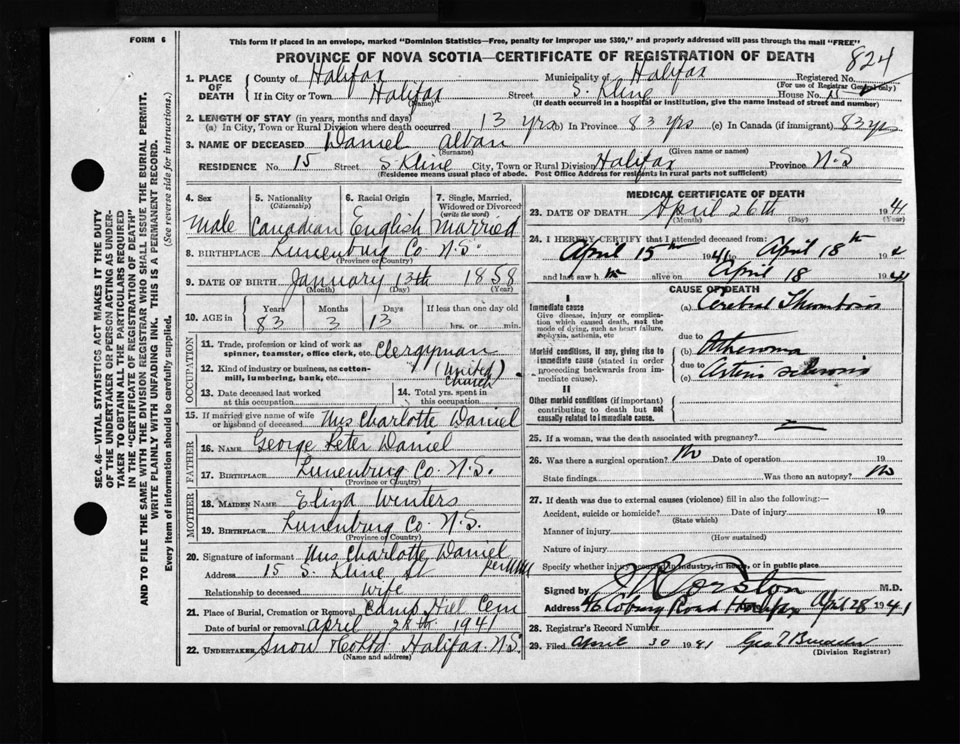 FORM 6
This form if placed in an envelope, marked "Dominion Statistics—Free, penalty for improper use $300," and properly addressed will pass through the mail "FREE"
PROVINCE OF NOVA SCOTIA—CERTIFICATE OF REGISTRATION OF DEATH
824
1. PLACE OF DEATH County of Halifax Municipality of Halifax Registered No.
(For use of Registrar General only)
If in City or Town Halifax Street S. Kline House No. 15
(Name) (If death occurred in a hospital or institution, give the name instead of street and number)
2. LENGTH OF STAY (in years, months and days)
(a) In City, Town or Rural Division where death occurred 13 yrs (b) In Province 83 yrs (c) In Canada (if immigrant) 83 yrs
3. NAME OF DECEASED Daniel Alban
(Surname) (Given name or names)
RESIDENCE No. 15 Street S. Kline City, Town or Rural Division Halifax Province N.S
(Residence means usual place of abode. Post Office Address for residents in rural parts not sufficient)
4. Sex 5. Nationality (Citizenship) 6. Racial Origin 7. Single, Married, Widowed or Divorced (write the word)
Male Canadian English Married
8. BIRTHPLACE Lunenburg Co N.S.
(Province or Country)
9. DATE OF BIRTH January 13th 1858
(Month) (Day) (Year)
10. AGE in Years Months Days If less than one day old
83 3 13 hrs. or min.
OCCUPATION
11. Trade, profession or kind of work as spinner, teamster, office clerk, etc. Clergyman
12. Kind of industry or business, as cotton-mill, lumbering, bank, etc. (United Church)
13. Date deceased last worked at this occupation 14. Total yrs. spent in this occupation
15. If married give name of wife or husband of deceased Mrs Charlotte Daniel
FATHER
16. NAME George Peter Daniel
17. BIRTHPLACE Lunenburg Co. N.S.
(Province or Country)
MOTHER
18. MAIDEN NAME Eliza Winters
19. BIRTHPLACE Lunenburg Co. N.S.
(Province or Country)
20. Signature of informant Mrs Charlotte Daniel
Address 15 S. Kline St per
Relationship to deceased Wife
21. Place of Burial, Cremation or Removal Camp Hill Cem
Date of burial or removal April 28th 1941
22. UNDERTAKER Snow & Co Ltd Halifax. N.S.
(Name and address)
MEDICAL CERTIFICATE OF DEATH
23. DATE OF DEATH April 26th 1941
(Month) (Day) (Year)
24. I HEREBY CERTIFY that I attended deceased from:
April 15th 1941 to April 18th 194
and last saw h m alive on April 18 1941
CAUSE OF DEATH
I
Immediate cause (a) Cerebral Thrombosis
Give disease, injury or complication which caused death, not the mode of dying, such as heart failure, asphyxia, asthenia, etc
due to
Morbid conditions, if any, giving rise to immediate cause (stated in order proceeding backwards from immediate cause). (b) Atheroma
due to
(c) Arterio sclerosis
II
Other morbid conditions (if important) contributing to death but not causally related to immediate cause.
25. If a woman, was the death associated with pregnancy?
26. Was there a surgical operation? No Date of operation 19
State findings Was there an autopsy? No
27. If death was due to external causes (violence) fill in also the following:
Accident, suicide or homicide? Date of injury 19
(State which)
Manner of injury
(How sustained)
Nature of injury
Specify whether injury occurred in industry, in home, or in public place
Signed by Corston M.D.
Address 46 Coburg Road Halifax April 28 1941
28. Registrar's Record Number
29. Filed April 30 1941 Geo
(Division Registrar)
SEC. 46—VITAL STATISTICS ACT MAKES IT THE DUTY
OF THE UNDERTAKER OR PERSON ACTING AS UNDER-
TAKER TO OBTAIN ALL THE PARTICULARS REQUIRED
IN THE "CERTIFICATE OF REGISTRATION OF DEATH"
AND TO FILE THE SAME WITH THE DIVISION REGISTRAR WHO SHALL ISSUE THE BURIAL PERMIT.
WRITE PLAINLY WITH UNFADING INK. THIS IS A PERMANENT RECORD.
Every item of information should be carefully supplied. (See reverse side for instructions.)